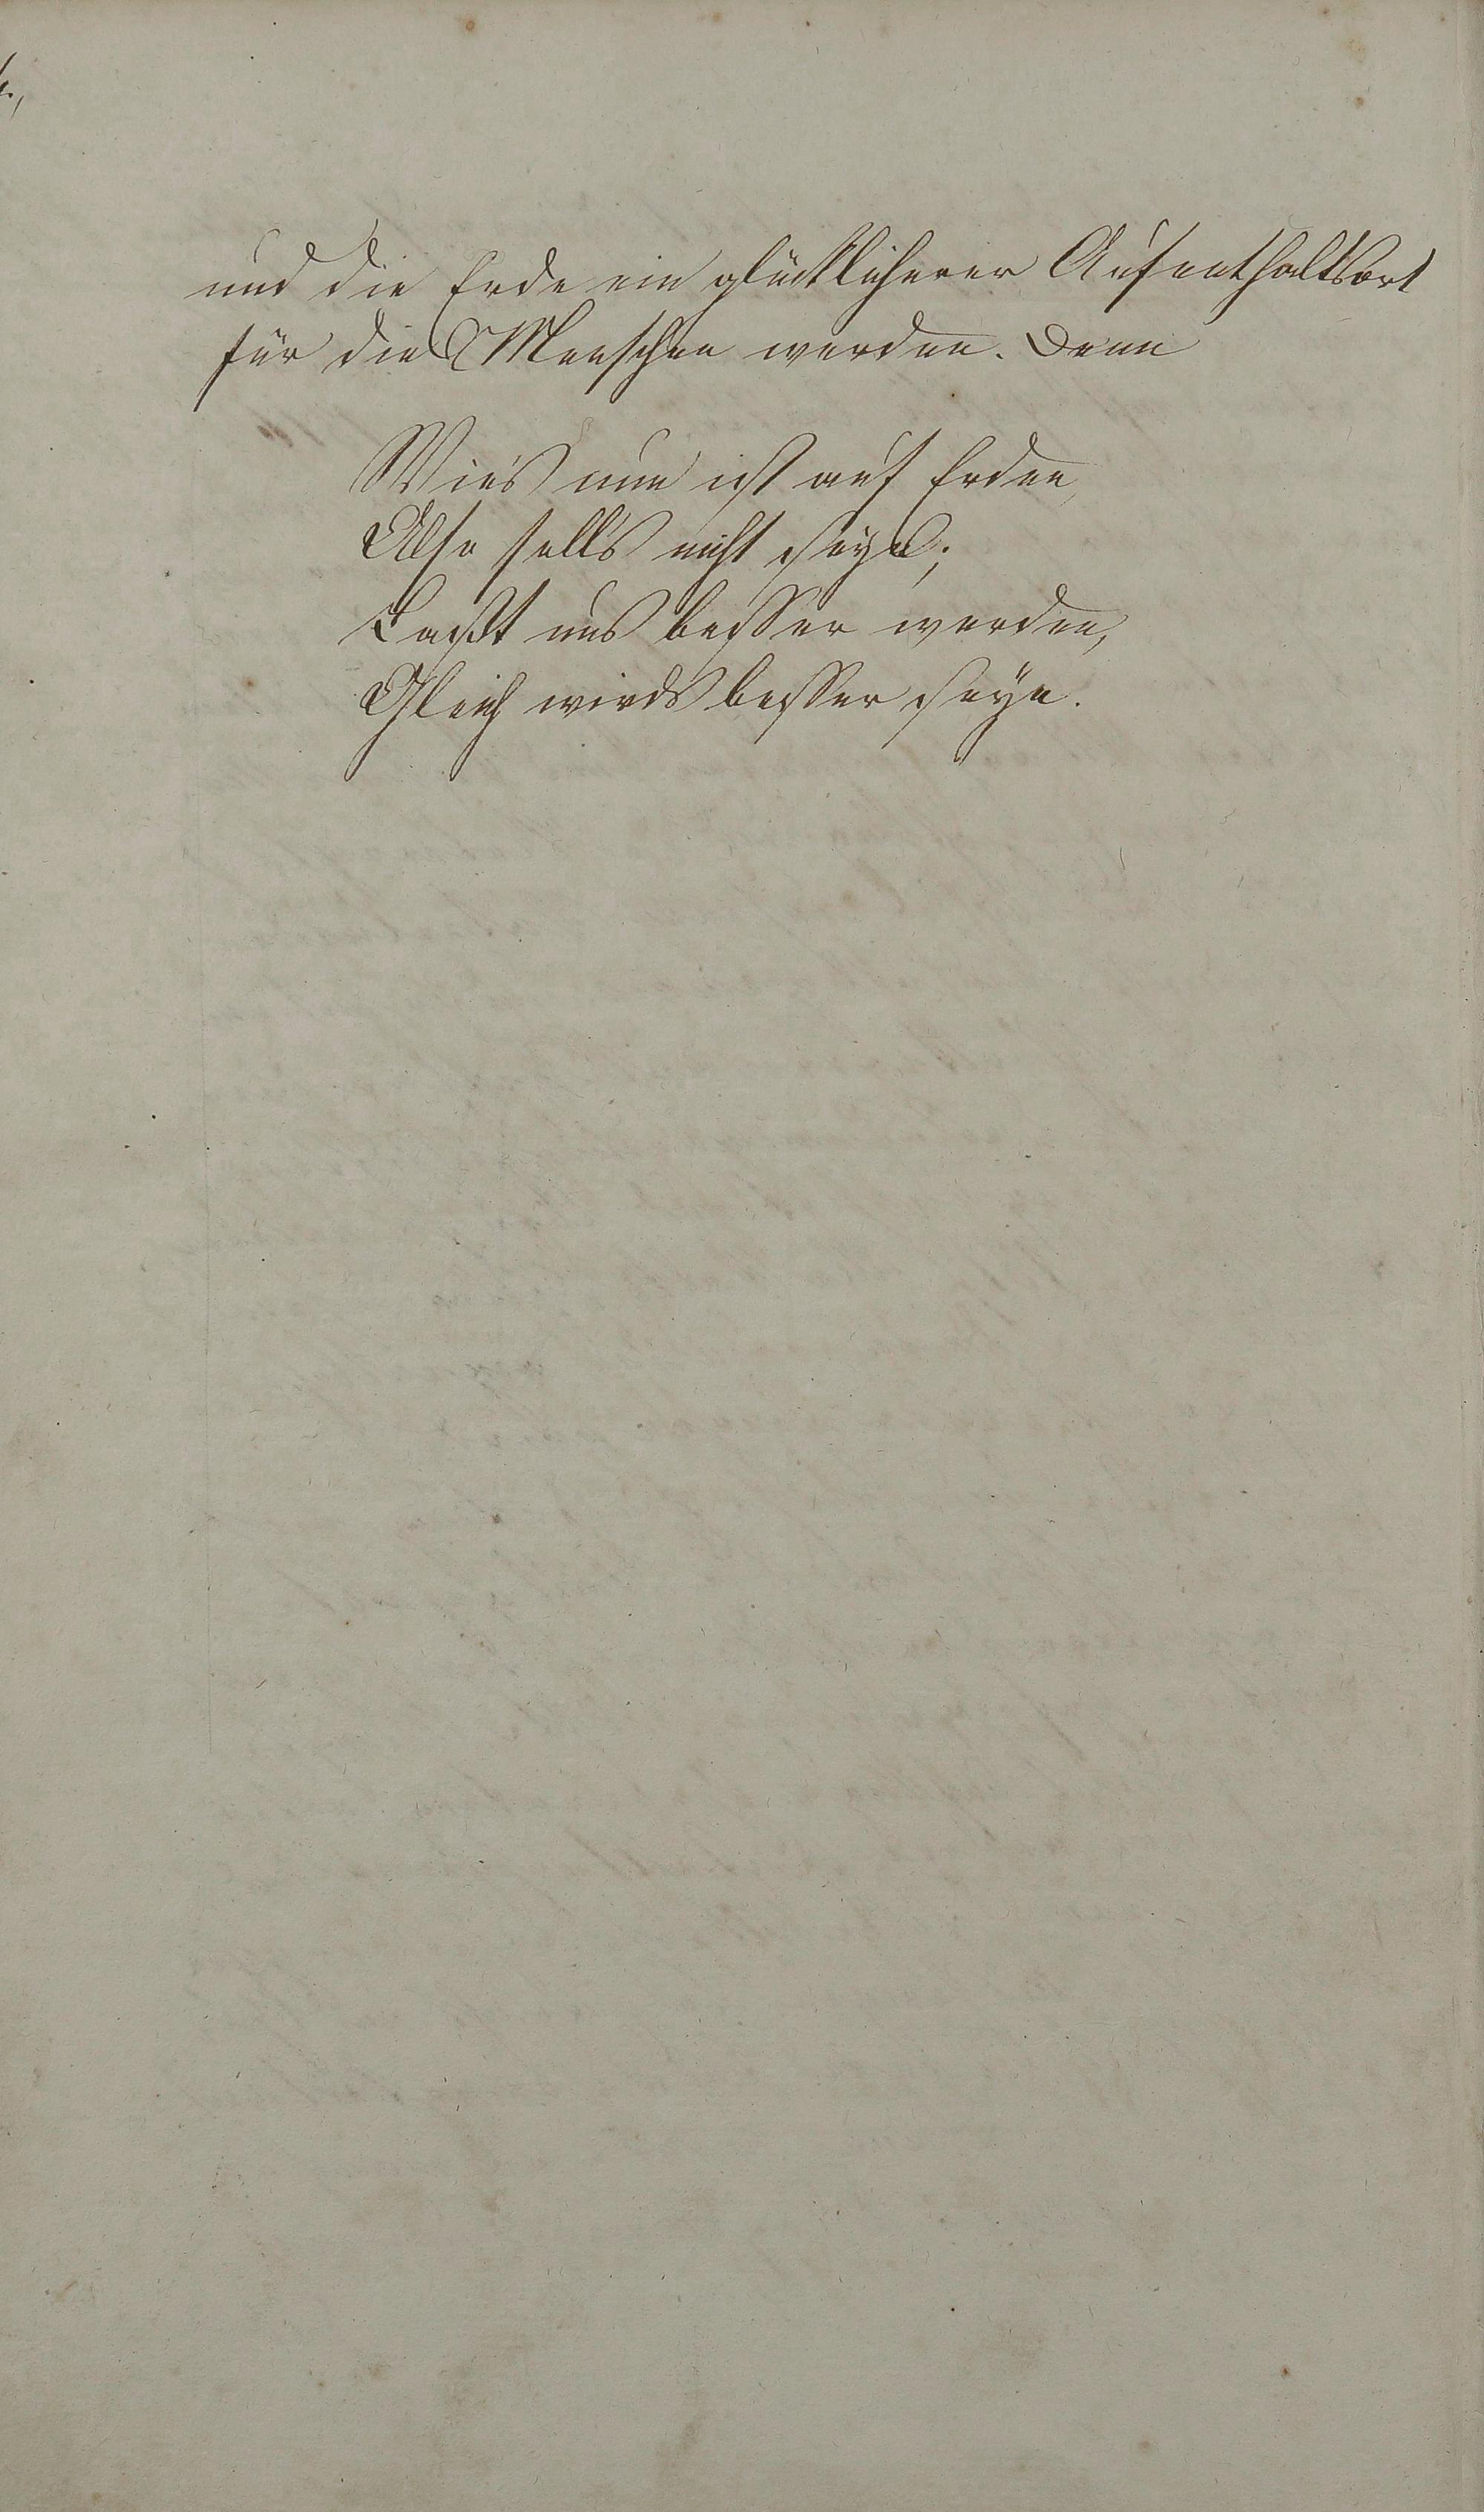 und die Erde ein glücklicherer Aufenthaltsort
für die Menschen werden. Denn
Wie's nun ist auf Erden,
Also sollt's nicht seyn;
Laßt uns besser werden,
Gleich wirds besser seyn.